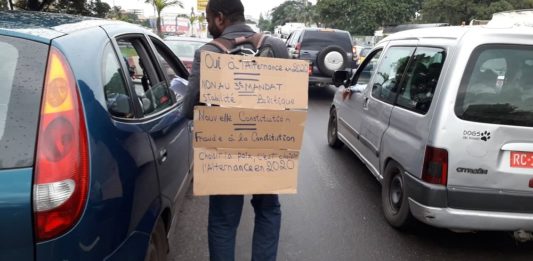 Oui à l'Alternance en 2020
NON AU 3è MANDAT
Stabilité Politique
Nouvelle Constitution
=
Fraude à la Constitution
Choisir la paix, c'est choisir
l'Alternance en 2020
DOGS
citroën
RC